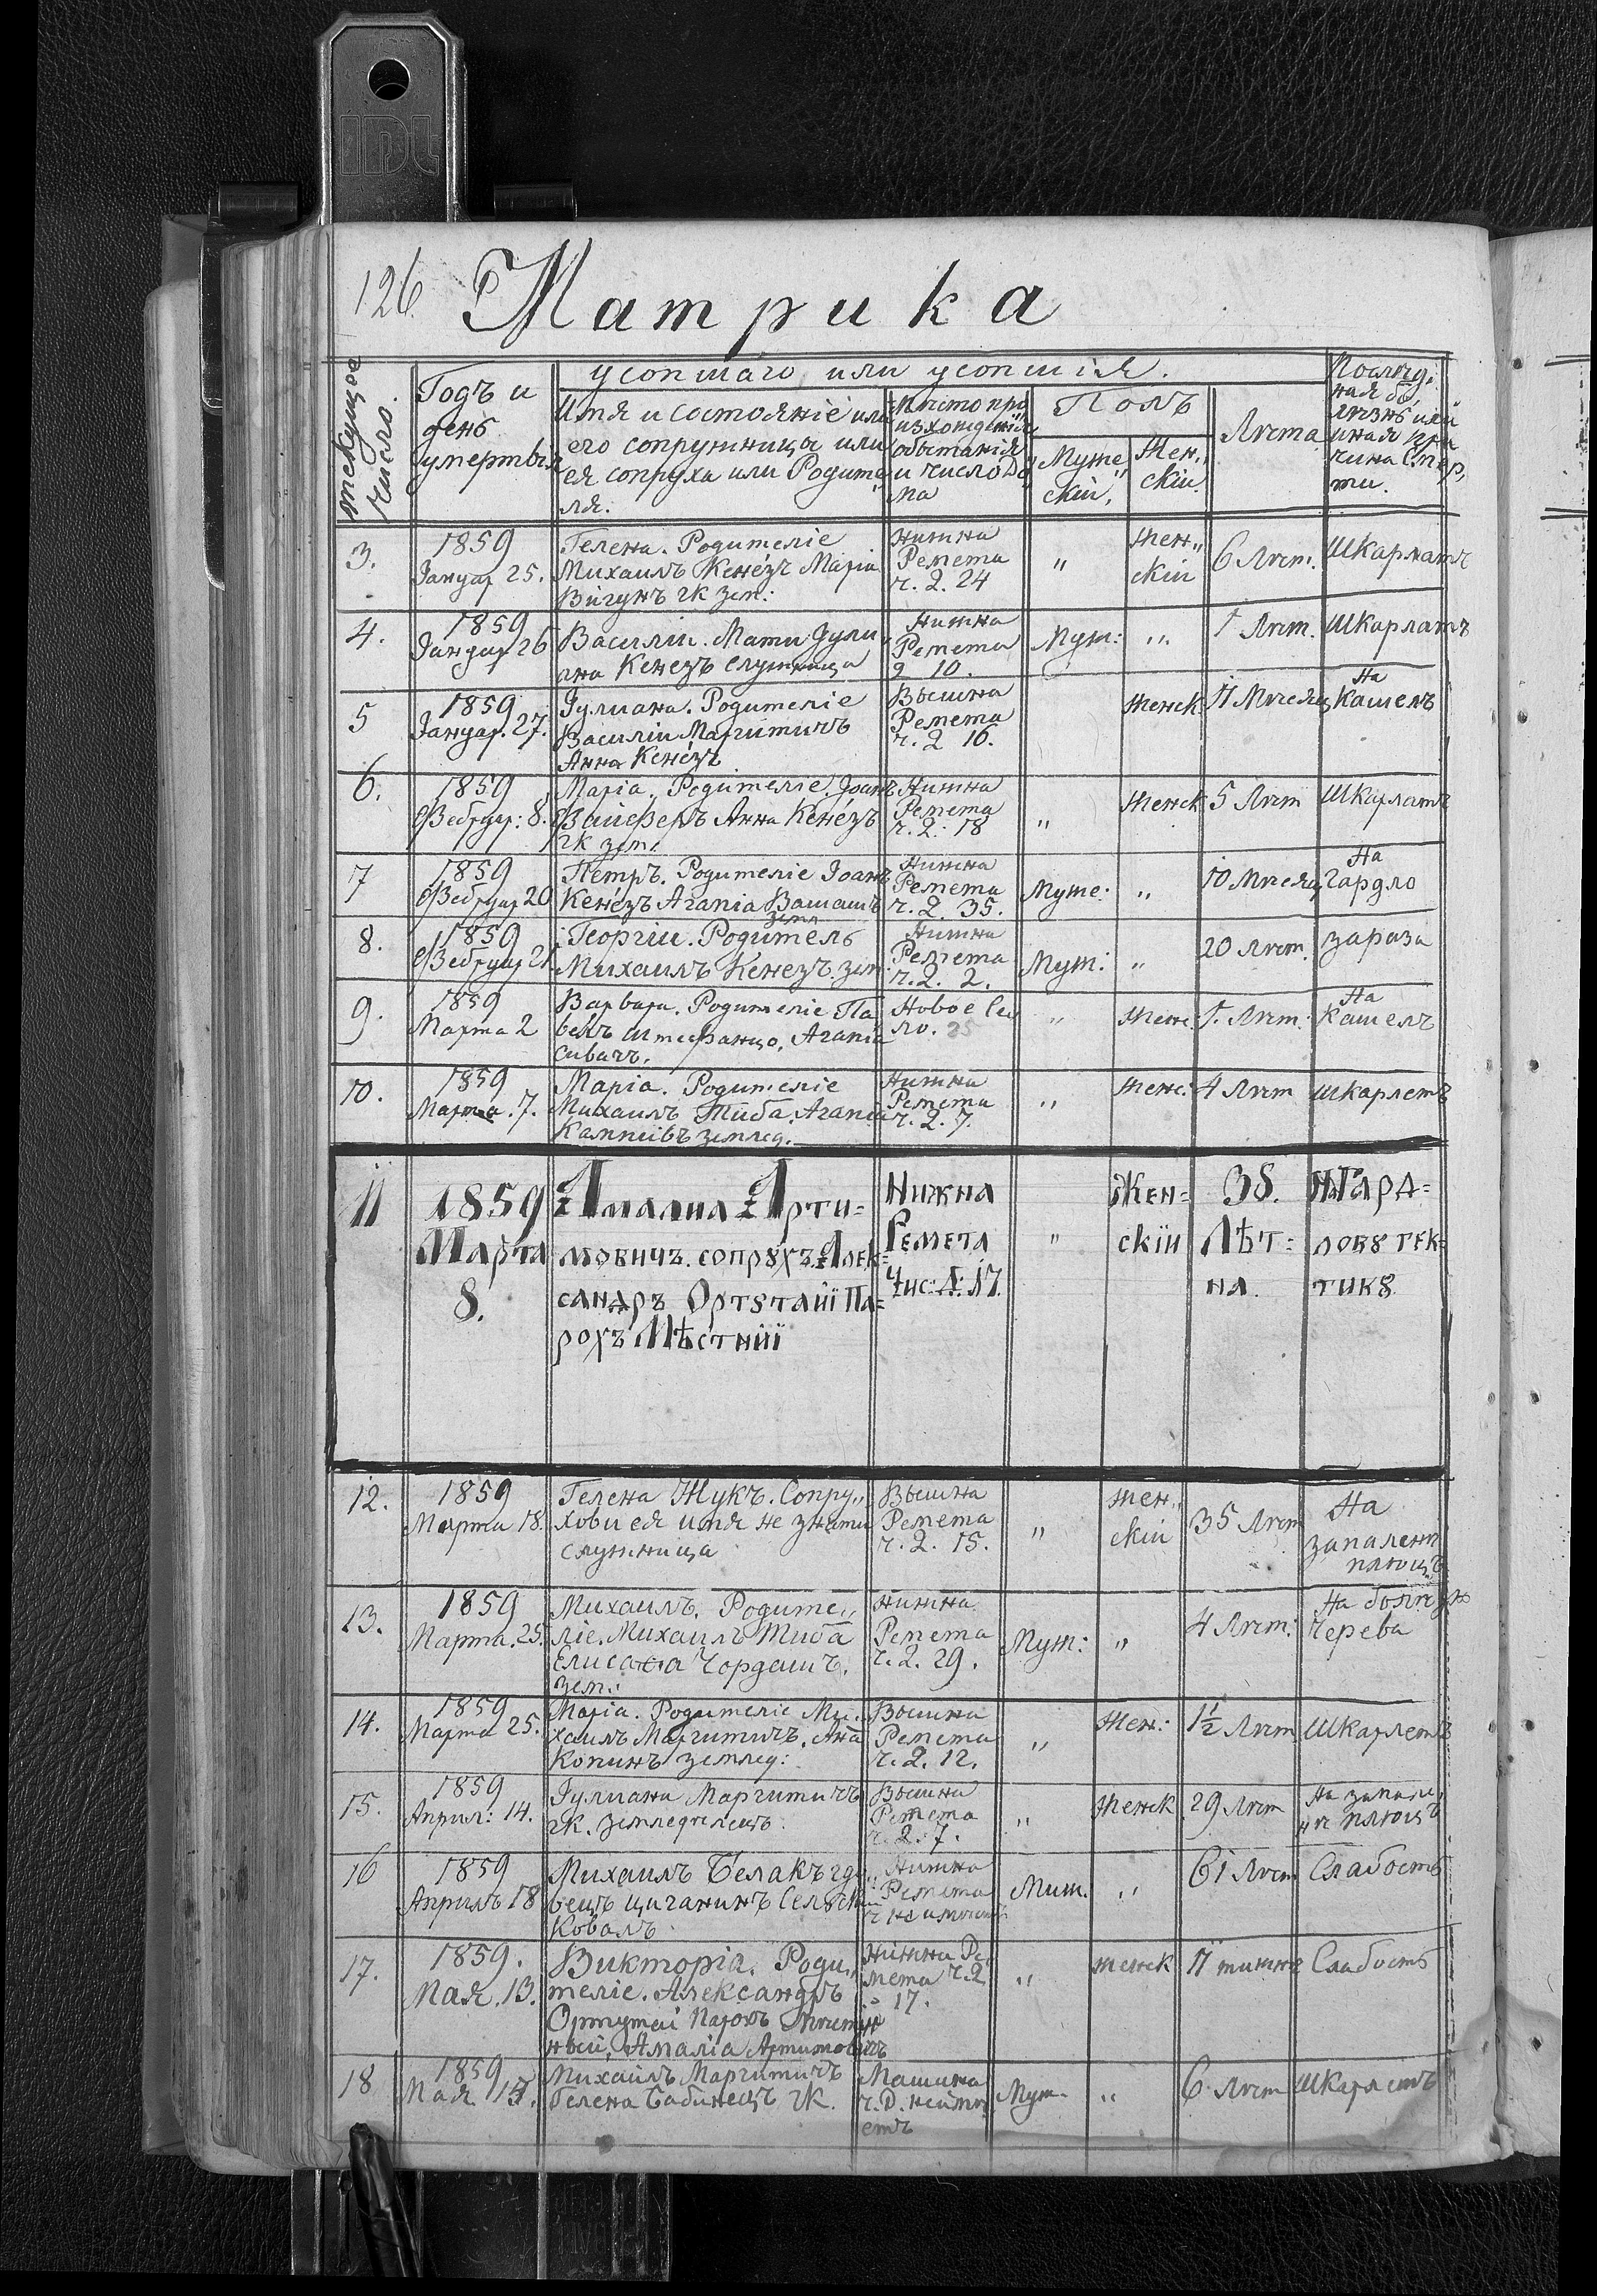 IDL
126. Матрика
текущее число.
Годъ и
день
умертвія
усопшаго или усопшія.
Имя и состояніе или
его сопружница или
ея сопруха или Родите
ля.
Место про
изхожденія
обытанія
и число До
ма
Полъ
Муже
скій,
Жен,,
скій.
Лѣта
Послѣд,
ная бо,
лѣзнь или
иная при
чина смер,
ти.
3.
1859
Januар 25.
Гелена. Родителіе
Михаилъ Кенéзъ Маріа
Вигунъ гк зем:
Нижна
Ремета
ч. Д. 24
"
Жен,,
скій
6 Лѣт.
Шкарлатъ
4.
1859
Януар 26
Василій. Мати Юли
ана Кенезъ служница
Нижна
Ремета
10.
Муж:
"
1 Лѣт.
Шкарлатъ
5
1859
Януар. 27.
Юлиана. Родителіе
Василій Маргитичъ
Анна Кенéзъ
Вышна
Ремета
ч. Д 16.
Женск
11 Мѣсяц
На
Кашель
6.
1859
Фебруар: 8.
Маріа. Родителіе Іоанъ
Вайсферъ Анна Кенéзъ
гк зем.
Нижна
Ремета
ч. Д. 18
"
Женск
5 Лѣт
Шкарлатъ
7
1859
Фебруар 20
Пётръ. Родителіе Іоанъ
Кенéзъ Агапіа Вашашъ
земл
Нижна
Ремета
ч. Д. 35.
Муже:
"
10 Мѣсяц
На
Гардло
8.
1859
Фебруар 21.
Георгій. Родитель
Михаилъ Кенезъ. зем:
Нижна
Ремета
ч. Д. 2.
Муж:
"
20 лѣт.
зараза
9.
1859
Марта 2
Варвара. Родителіе Па
велъ Штефанцо, Агапіа
Сивачъ.
Новое Се
ло. 25
"
Женс:
1. Лѣт:
На
Кашель
10.
1859
Марта. 7.
Маріа. Родителіе
Михаилъ Тиба. Агапіа
землед.
Нижна
Ремета
ч. Д. 7.
"
Женс:
4 Лѣт
Шкарлетъ
11
1859
Марта
8.
Амалиа Арти=
мовичъ. сопрꙋхъ. Алек=
сандръ Ортꙋтаіи Па=
рохъ Мѣстніи
Нижна
Ремета
Чис: Д: 17.
"
Жен=
скіи
38.
Лѣт=
на.
На Гард=
ловꙋ гек=
тикꙋ.
12.
1859
Марта 18.
Гелена Жукъ. Сопру,,
хови ея имя не знати
служница
Вышна
Ремета
ч. Д. 15.
"
Жен,,
скій
35 Лѣт
На
запалент
плюцъ
13.
1859
Марта. 25.
Михаилъ. Родите,,
ліе. Михаилъ Тиба
Елисавта Чордашъ.
зем:
Нижна
Ремета
ч. Д. 29.
Муж:
"
4 Лѣт:
На
Черева
14.
1859
Марта 25.
Маріа. Родителіе Ми,,
хаилъ Маргитичъ. Ана
Копинъ землед:
Вышна
Ремета
ч. Д. 12.
"
Жен:
1½ Лѣт
Шкарлетъ
15.
1859
Април: 14.
Юлиана Маргитичъ
гк. земледѣлецъ.
Вышна
Ремета
ч. Д. 7.
"
Женск
29 Лѣт
На запале
нѣ плюцъ
16
1859
Априлъ 18
Михаилъ Белакъ вдо
вецъ циганинъ Сельск
Коваль
Нижна
Ремета
Муж.
"
61 Лѣт
Слабость
17.
1859.
Мая. 13.
Викторіа. Роди,,
теліе. Александръ
Ортутай Парохъ Мѣст
ный, Амаліа Артимовичъ
Нижна Ре
мета ч. Д
17.
"
Женск
11 тижнѣ
Слабость
18
1859
Мая 15.
Михаилъ Маргитичъ
Гелена Бабинецъ гк.
Машина
ч. Д. неймѣ
етъ
Муж.
"
6 Лѣт
Шкарлетъ